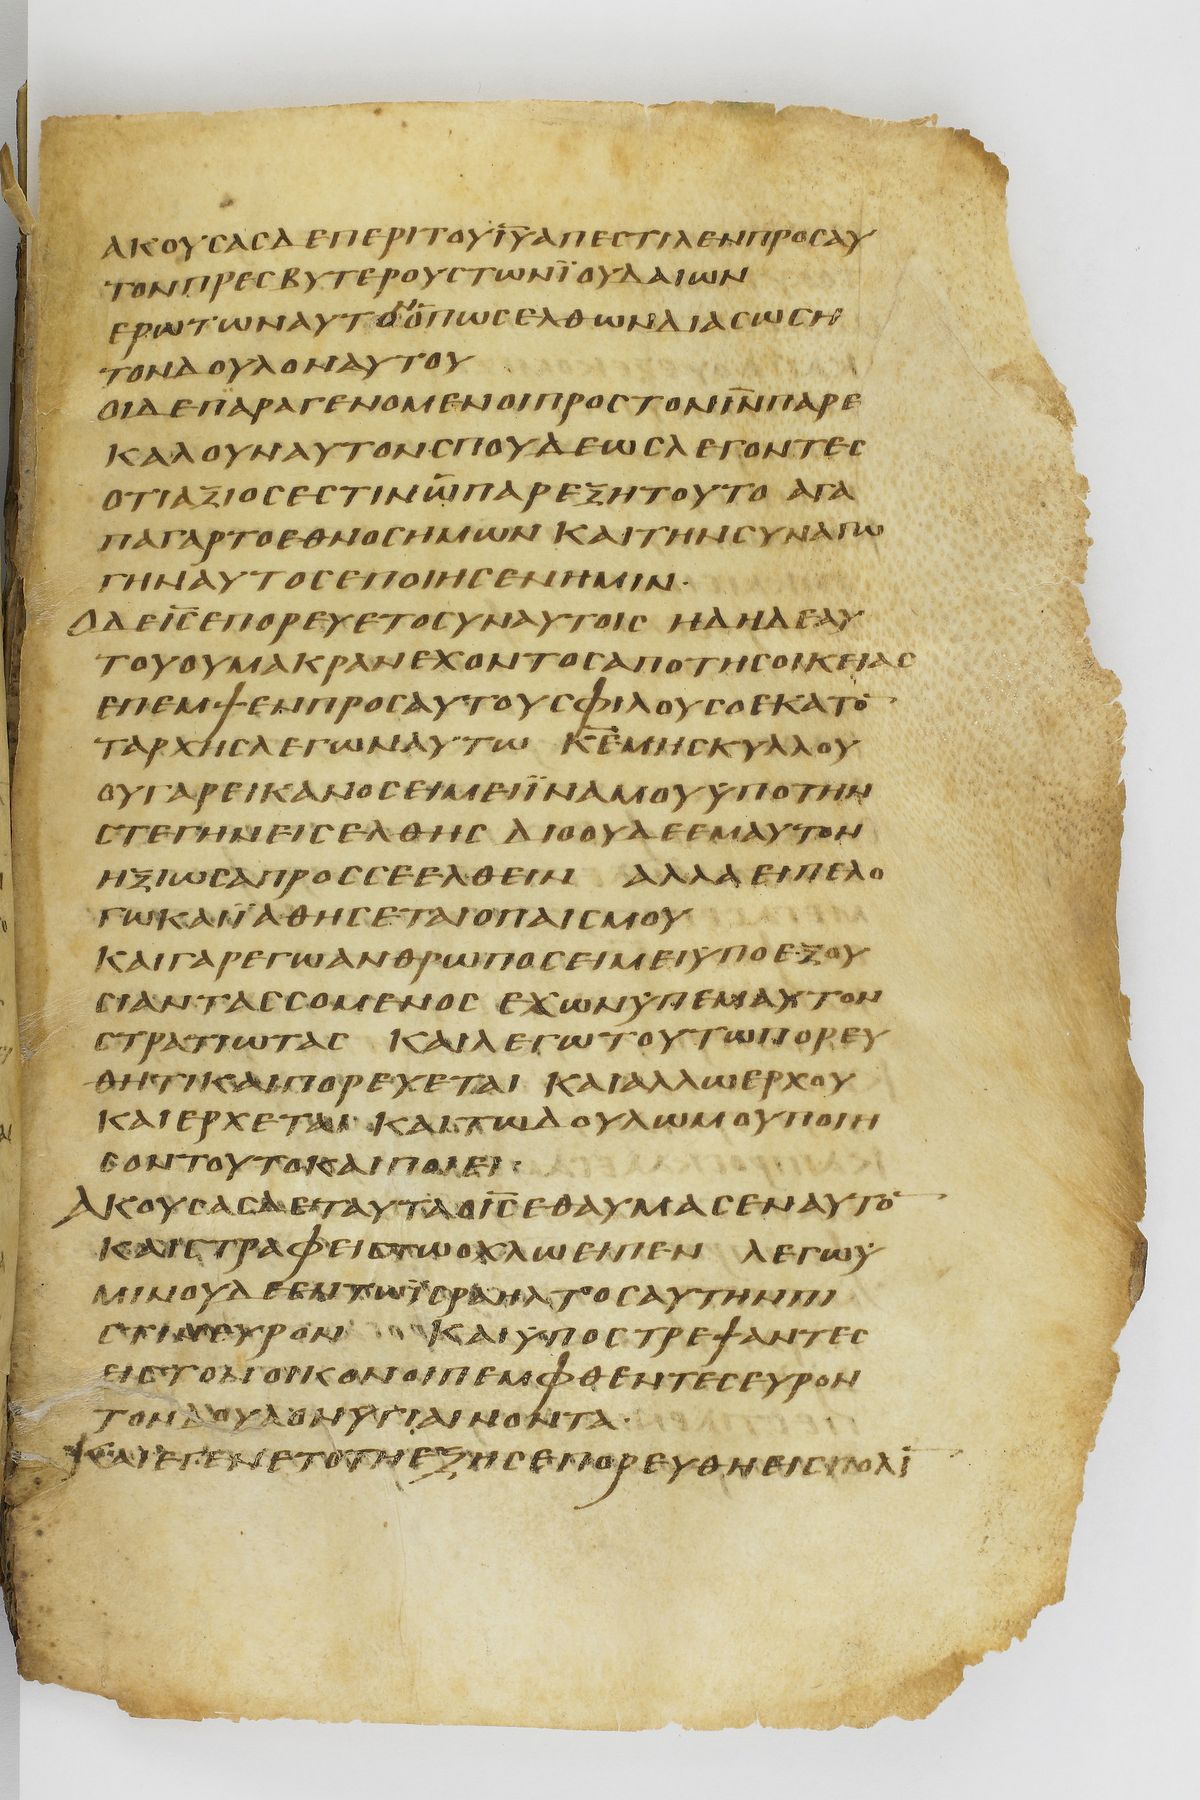 ΑΚΟΥϹΑϹΔΕΠΕΡΙΤΟΥΙ̅Υ̅ΑΠΕϹΤΙΛΕΝΠΡΟϹΑΥ
ΤΟΝΠΡΕϹΒΥΤΕΡΟΥϹΤΩΝΪΟΥΔΑΙΩΝ
ΕΡΩΤΩΝΑΥΤΟΝΟΠΩϹΕΛΘΩΝΔΙΑϹΩϹΗ
ΤΟΝΔΟΥΛΟΝΑΥΤΟΥ
ΟΙΔΕΠΑΡΑΓΕΝΟΜΕΝΟΙΠΡΟϹΤΟΝΙ̅Ν̅ΠΑΡΕ
ΚΑΛΟΥΝΑΥΤΟΝϹΠΟΥΔΕΩϹΛΕΓΟΝΤΕϹ
ΟΤΙΑΞΙΟϹΕϹΤΙΝΩΠΑΡΕΞΗΤΟΥΤΟ ΑΓΑ
ΠΑΓΑΡΤΟΕΘΝΟϹΗΜΩΝ ΚΑΙΤΗΝϹΥΝΑΓΩ
ΓΗΝΑΥΤΟϹΕΠΟΙΗϹΕΝΗΜΙΝ·
ΟΔΕΙ̅Ϲ̅ΕΠΟΡΕΥΕΤΟϹΥΝΑΥΤΟΙϹ ΗΔΗΔΕΑΥ
ΤΟΥΟΥΜΑΚΡΑΝΕΧΟΝΤΟϹΑΠΟΤΗϹΟΙΚΕΙΑϹ
ΕΠΕΜΨΕΝΠΡΟϹΑΥΤΟΥϹΦΙΛΟΥϹΟΕΚΑΤΟ̅
ΤΑΡΧΗϹΛΕΓΩΝΑΥΤΩ Κ̅Ε̅ΜΗϹΚΥΛΛΟΥ
ΟΥΓΑΡΕΙΚΑΝΟϹΕΙΜΕΙΪΝΑΜΟΥΥΠΟΤΗΝ
ϹΤΕΓΗΝΕΙϹΕΛΘΗϹ ΔΙΟΟΥΔΕΕΜΑΥΤΟΝ
ΗΞΙΩϹΑΠΡΟϹϹΕΕΛΘΕΙΝ ΑΛΛΑΕΙΠΕΛΟ
ΓΩΚΑΙΪΑΘΗϹΕΤΑΙΟΠΑΙϹΜΟΥ
ΚΑΙΓΑΡΕΓΩΑΝΘΡΩΠΟϹΕΙΜΕΙΥΠΟΕΞΟΥ
ϹΙΑΝΤΑϹϹΟΜΕΝΟϹ ΕΧΩΝΥΠΕΜΑΥΤΟΝ
ϹΤΡΑΤΙΩΤΑϹ ΚΑΙΛΕΓΩΤΟΥΤΩΠΟΡΕΥ
ΘΗΤΙΚΑΙΠΟΡΕΥΕΤΑΙ ΚΑΙΑΛΛΩΕΡΧΟΥ
ΚΑΙΕΡΧΕΤΑΙ ΚΑΙΤΩΔΟΥΛΩΜΟΥΠΟΙΗ
ϹΟΝΤΟΥΤΟΚΑΙΠΟΙΕΙ·
ΑΚΟΥϹΑϹΔΕΤΑΥΤΑΟΙ̅Ϲ̅ΕΘΑΥΜΑϹΕΝΑΥΤΟ̅
ΚΑΙϹΤΡΑΦΕΙϹΤΩΟΧΛΩΕΙΠΕΝ ΛΕΓΩΥ
ΜΙΝΟΥΔΕΕΝΤΩΙϹΡΑΗΛΤΟϹΑΥΤΗΝΠΙ
ϹΤΙΝΕΥΡΟΝ ΚΑΙΥΠΟϹΤΡΕΨΑΝΤΕϹ
ΕΙϹΤΟΝΟΙΚΟΝΟΙΠΕΜΦΘΕΝΤΕϹΕΥΡΟΝ
ΤΟΝΔΟΥΛΟΝΥΓΙΑΙΝΟΝΤΑ·
ΚΑΙΕΓΕΝΕΤΟΤΗΕΞΗϹΕΠΟΡΕΥΘΗΕΙϹΠΟΛΙ̅